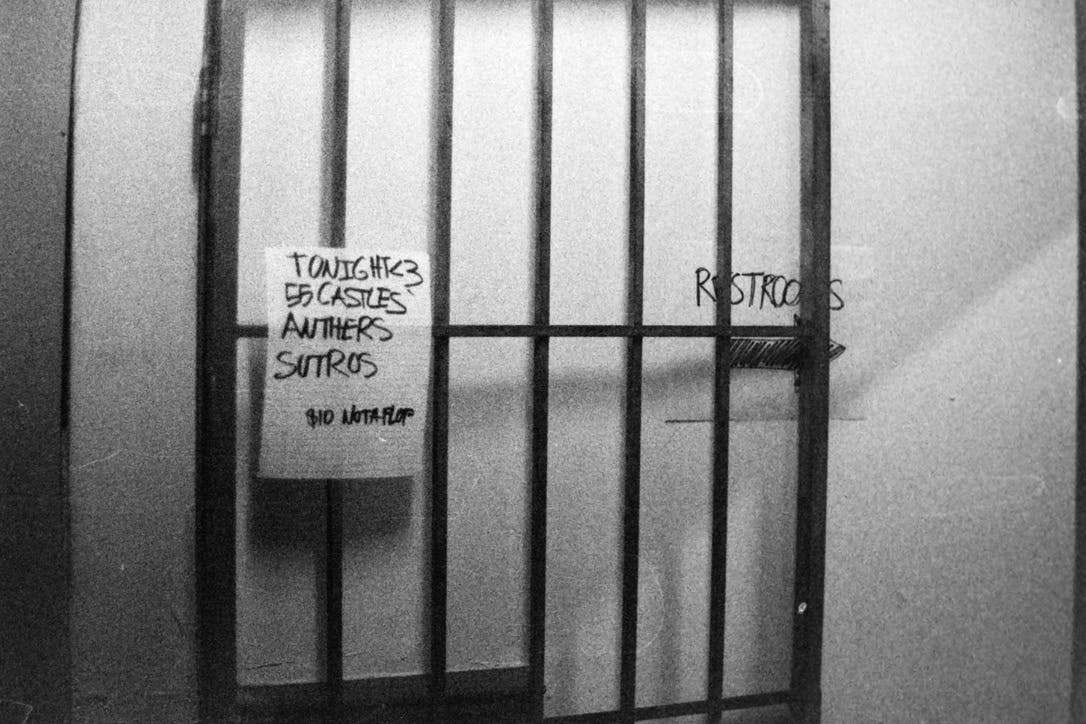 TONIGHT<3
55 CASTLES
ANTHERS
SUTROS
$10 NOTAFLOF
RESTROOMS